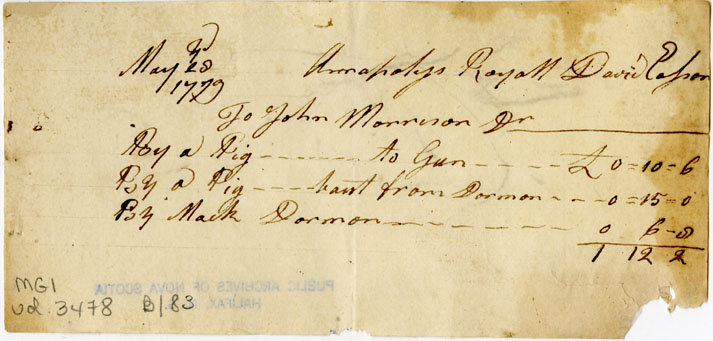 May 28 Annapolys Royall David Easson
1779
To John Morrison Dr
By a Pig to Gun £ 0=10=6
By a Pig baut from Dormon 0=15=0
By Mack Dormon 0 6=8
1 12 2
PUBLIC ARCHIVES OF NOVA SCOTIA
HALIFAX, N. S.
MG1
vol. 3478 B/83